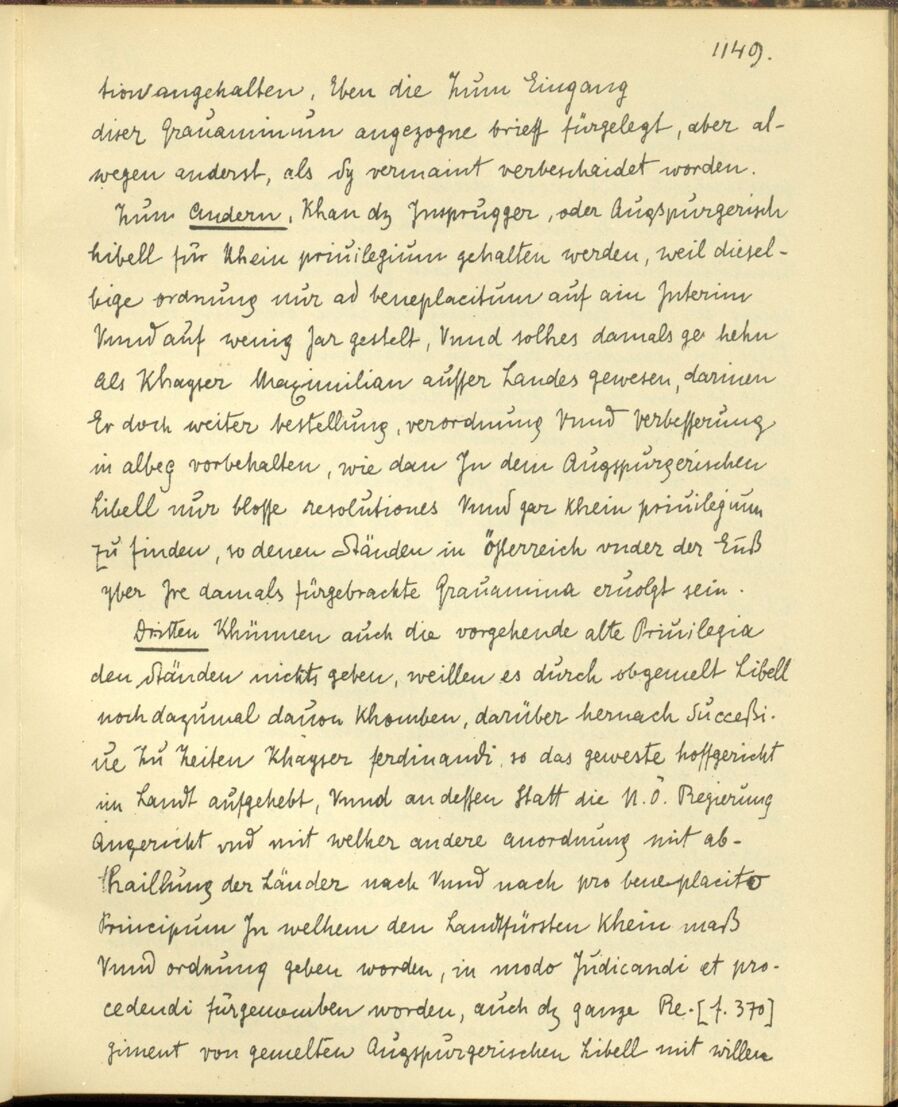 1149.
tion angehalten, Eben die Zum Eingang
diser Grauaminum angezogne brieff fürgelegt, aber al-
wegen anderst, als Sy vermaint verbeschaidet worden.
Zum Andern, Khan dz Insprugger, oder Augspurgerisch
libell für Khein priuilegium gehalten werden, weil diesel-
bige ordnung nur ad beneplacitum auf ain Interim
Vnnd auf wenig Jar gestelt, Vnnd solhes damals ge hehn
als Khayser Maximilian ausser Landes gewesen, darinen
Er doch weiter bestellung, verordnung Vnnd Verbesserung
in albeg vorbehalten, wie dan In dem Augspurgerischen
Libell nur blosse resolutiones Vnnd gar Khein priuilegium
zu finden, so denen Ständen in Österreich vnder der Enß
yber Ire damals fürgebrachte Grauamina eruolgt sein.
Dritten Khünnen auch die vorgehende alte Priuilegia
den Ständen nichts geben, weillen es durch obgemelt Libell
noch dazumal dauon Khomben, darüber hernach Successi-
ue Zu Zeiten Khayser ferdinandi, so das geweste hoffgericht
im Landt aufgehebt, Vnnd an dessen Statt die N. Ö. Regierung
Angericht vnd mit welher andere anordnung mit ab-
thaillung der Länder nach Vnnd nach pro beneplacito
Principum In welhem den Landtfürsten Khein maß
Vnnd ordnung geben worden, in modo Judicandi et pro-
cedendi fürgenomben worden, auch dz ganze Re-[f. 370]
giment von gemelten Augspurgerischen Libell mit willen